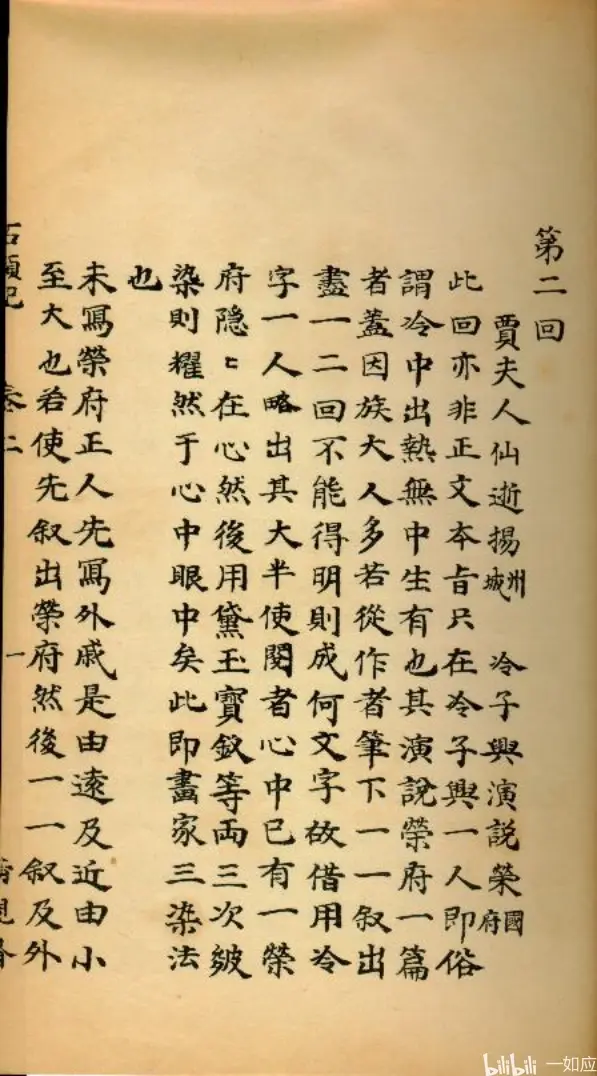 第二回
賈夫人仙逝揚州城 冷子興演說榮國府
此回亦非正文本旨只在冷子興一人即俗
謂冷中出熱無中生有也其演說榮府一篇
者蓋因族大人多若從作者筆下一一叙出
盡一二回不能得明則成何文字故借用冷
字一人略出其大半使閱者心中已有一榮
府隐〻在心然後用黛玉寶釵等両三次皴
染則耀然于心中眼中矣此即畫家三染法
也
未寫榮府正人先寫外戚是由遠及近由小
至大也若使先叙出榮府然後一一叙及外
石頭記 卷二 一
bilibili 一如应